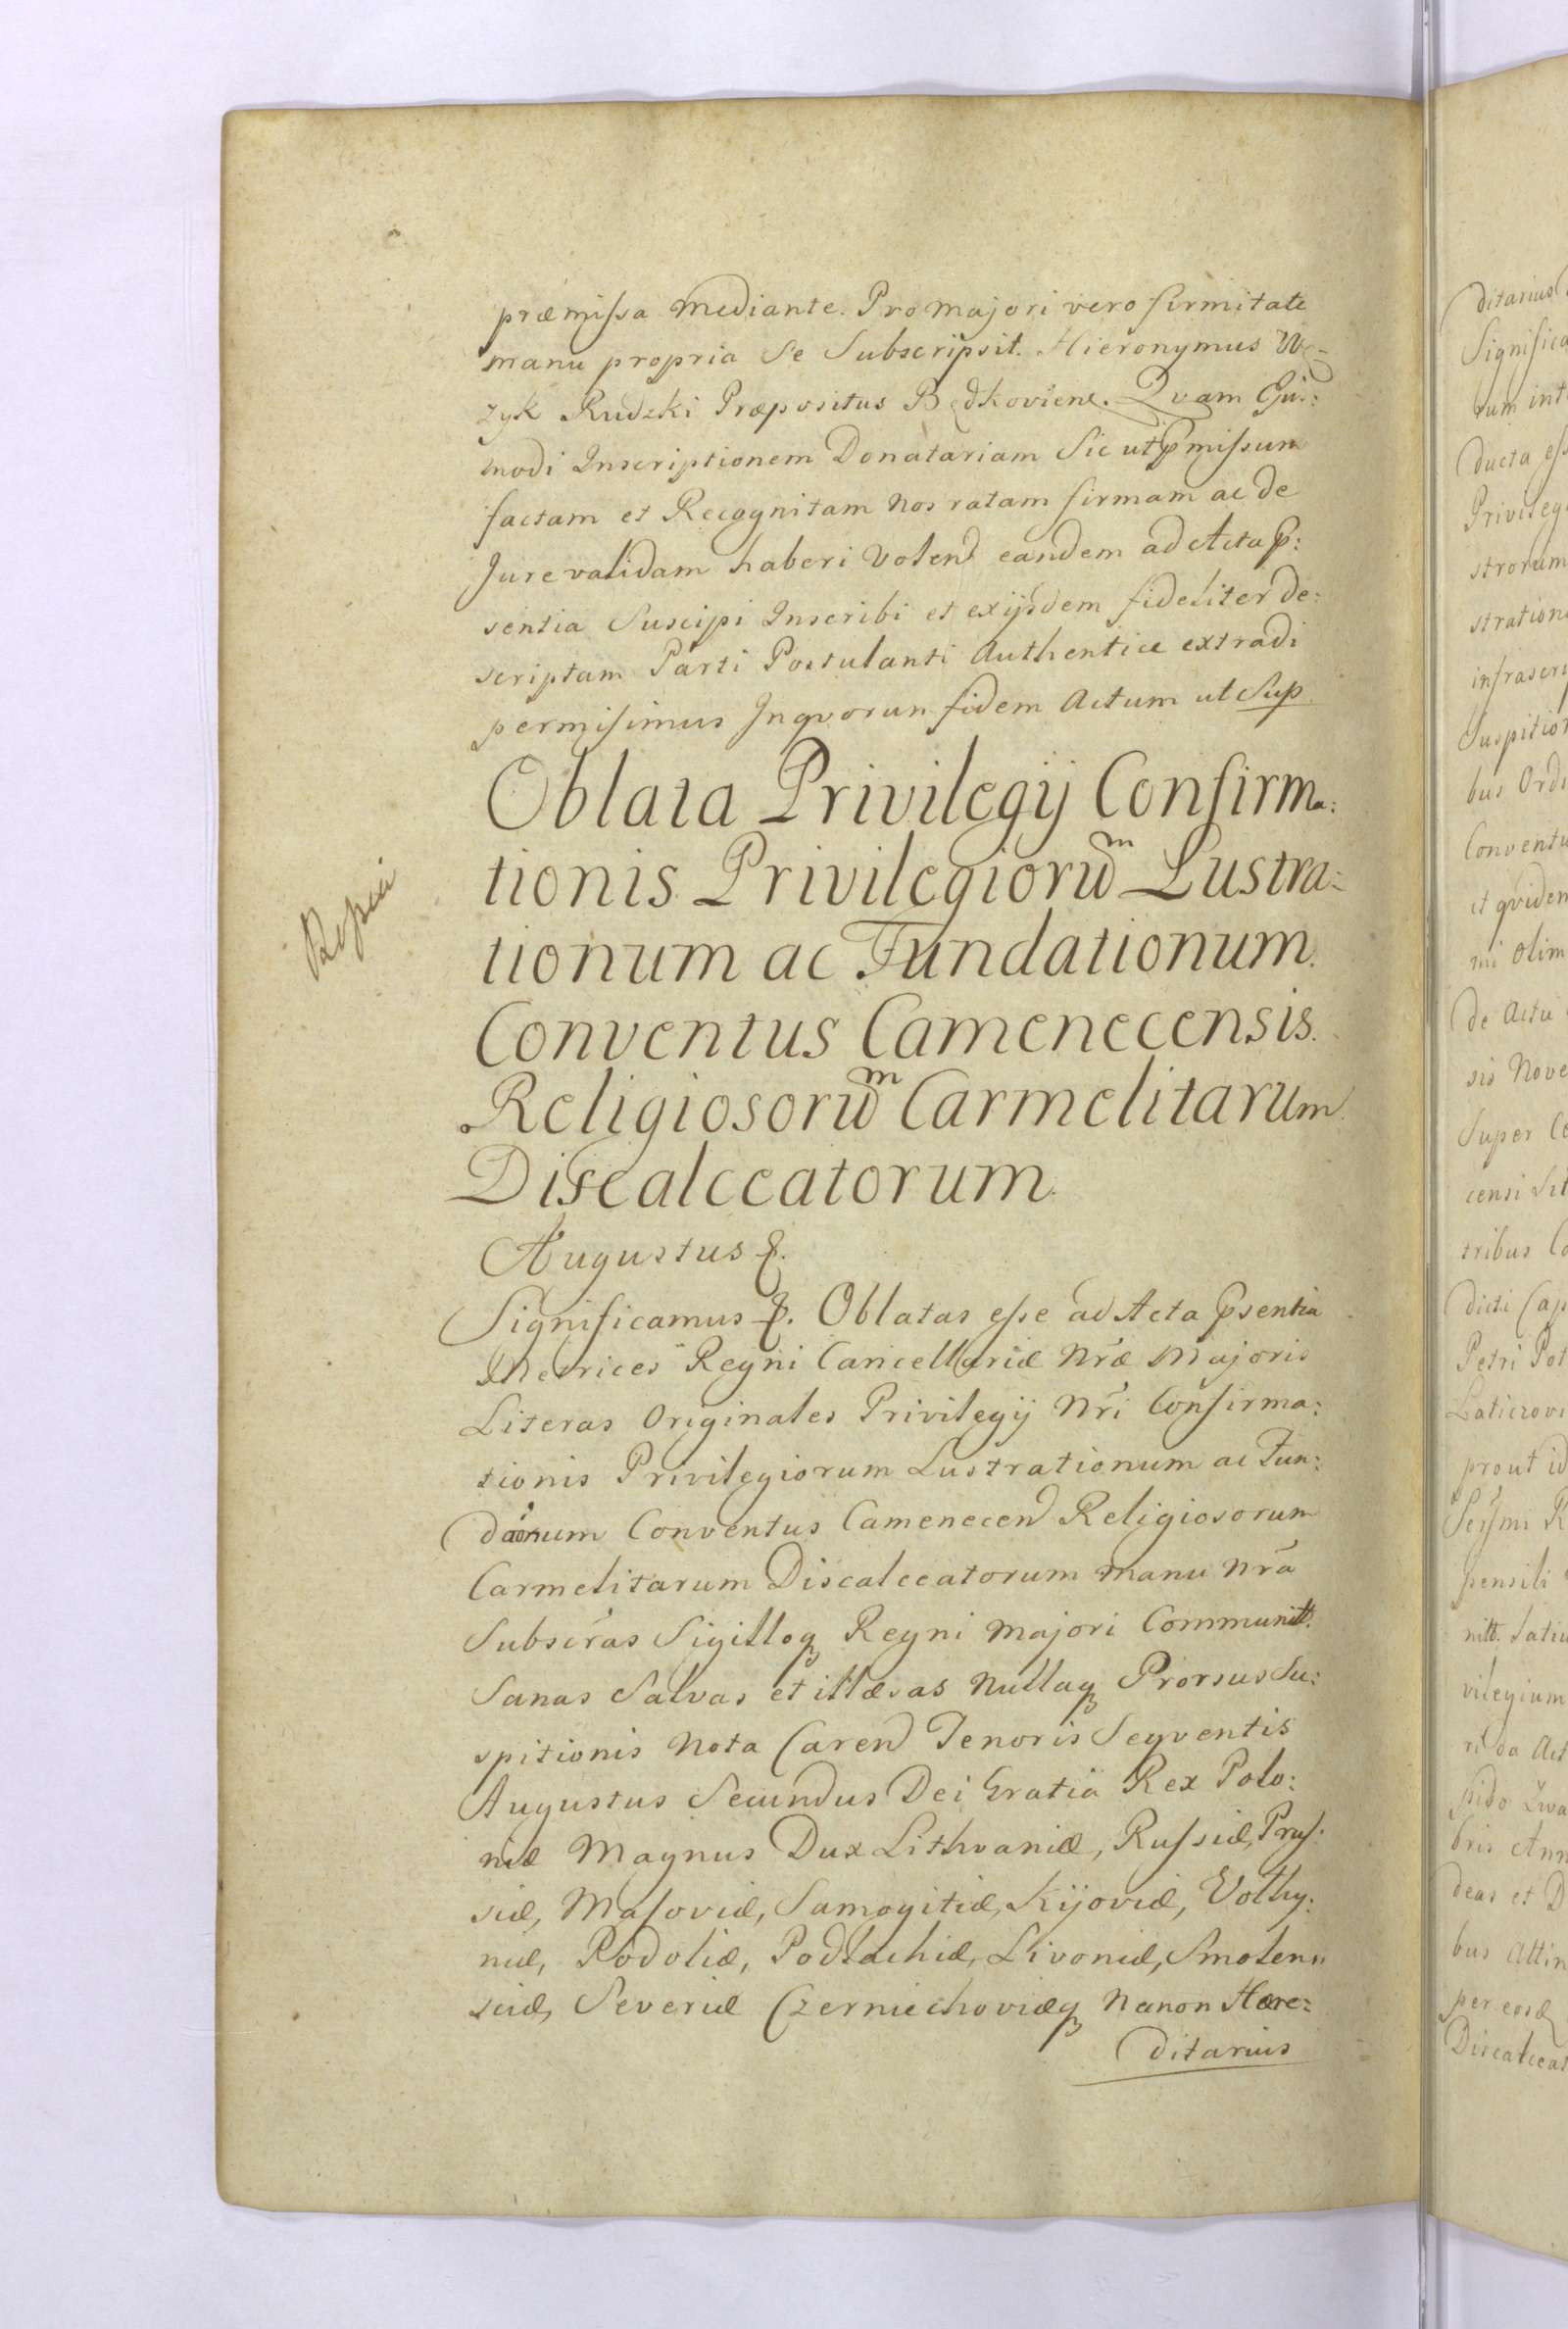 præmissa mediante. Pro majori vero firmitate
manu propria Se Subscripsit. Hieronymus Wę-
zyk Rudzki Præpositus Będkoviens. Qvam Ejus:
modi Inscriptionem Donatariam Sic ut p̃missum
factam et Recognitam nos ratam firmam ac de
Jure validam haberi Volend eandem ad Acta p̃:
sentia Suscipi Inscribi et exijsdem fideliter de:
scriptam Parti Postulanti Authentice extradi
permisimus Inqvorum fidem Actum ut Sup.
Oblata Privilegij Confirma:
tionis Privilegiorũm Lustra:
tionum ac Fundationum
Conventus Camenecensis
Religiosorũm Carmelitarum
Discalceatorum.
Augustus &.
Significamus &. Oblatas esse ad Acta p̃sentia
Metrices Regni Cancellariæ Nr̃æ Majoris
Literas Originales Privilegij Nr̃i Confirma:
tionis Privilegiorum Lustrationum ac Fun:
dãonum Conventus Camenecend Religiosorum
Carmelitarum Discalceatorum manu Nr̃a
Subscr̃as Sigilloq Regni Majori Communitt.
Sanas Salvas et illæsas Nullaq Prorsus Su:
spitionis Nota Carend Tenoris Seqventis
Augustus Secundus Dei Gratia Rex Polo:
niæ Magnus Dux Lithvaniæ, Russiæ, Prus:
siæ, Masoviæ, Samogitiæ, Kijoviæ, Volhy:
niæ, Podoliæ, Podlachiæ, Livoniæ, Smolen:
sciæ, Severiæ Czerniechoviæq Necnon Hære:
ditarius
ditarius
Significa
rum int
ducta ess
Privileg
strorum
stration
infrascri
Suspition
bus Ordi
Conventu
et qvidem
mi olim
de Actu
sis Nove
Super Co
censi Sit
tribus Co
dicti Cap
Petri Pot
Laticzovi
prout id
Serſmi R
pensili
nitt. Satu
vilegium
ri da Act
pido Zwa
bris Ann
deas et D
bus Attin
per eosd
Discalceat